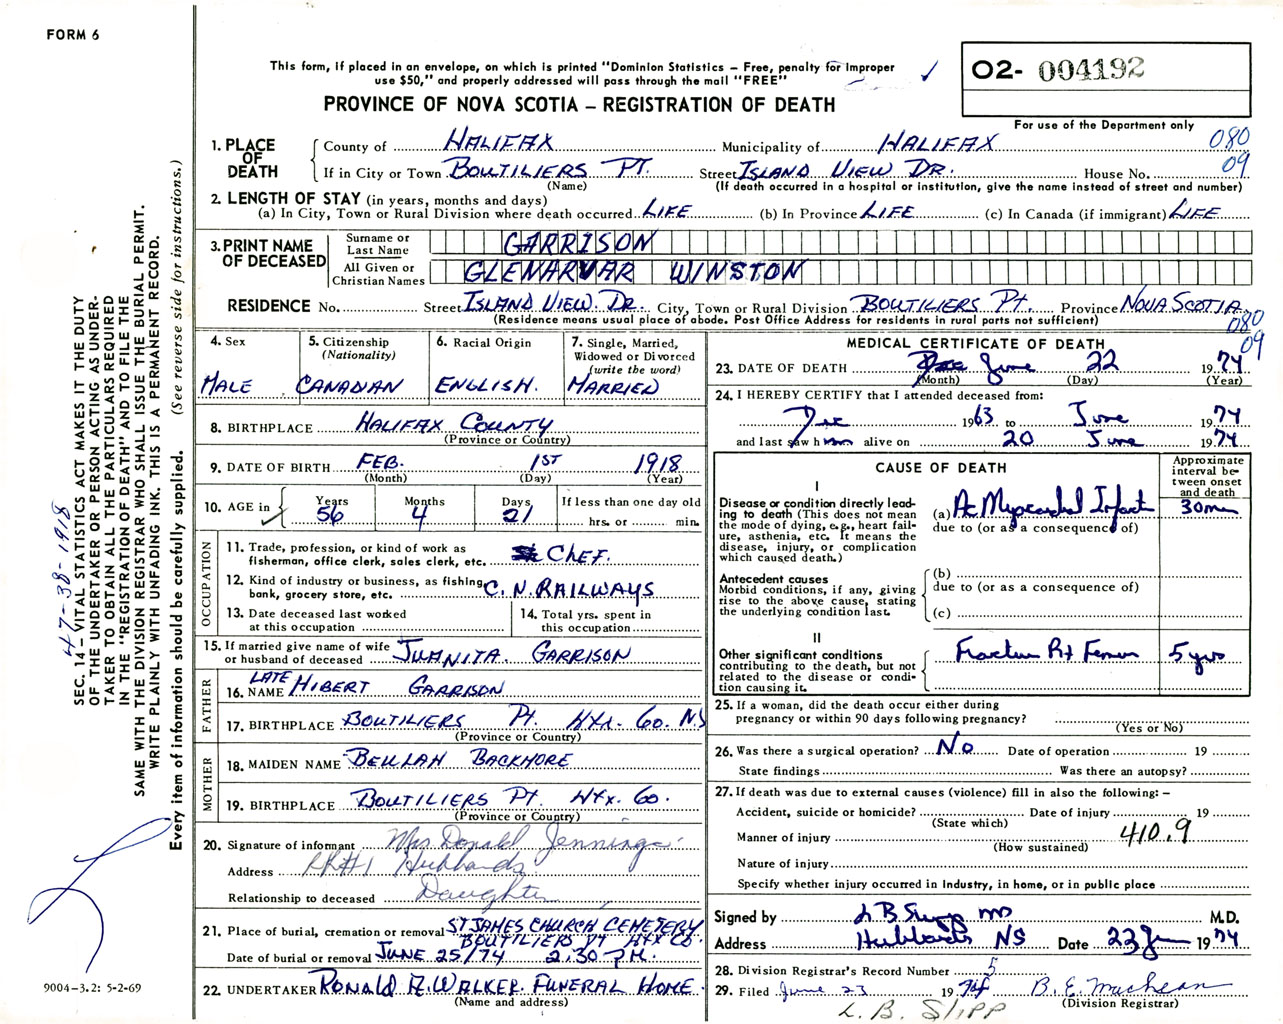 FORM 6
This form, if placed in an envelope, on which is printed "Dominion Statistics – Free, penalty for improper
use $50," and properly addressed will pass through the mail "FREE"
02- 004192
PROVINCE OF NOVA SCOTIA – REGISTRATION OF DEATH
For use of the Department only
080
09
1. PLACE OF DEATH
County of HALIFAX Municipality of HALIFAX
If in City or Town BOUTILIERS PT. Street ISLAND VIEW DR. House No.
(Name) (If death occurred in a hospital or institution, give the name instead of street and number)
2. LENGTH OF STAY (in years, months and days)
(a) In City, Town or Rural Division where death occurred LIFE (b) In Province LIFE (c) In Canada (if immigrant) LIFE
3. PRINT NAME OF DECEASED
Surname or Last Name GARRISON
All Given or Christian Names GLENARVAR WINSTON
RESIDENCE No. Street ISLAND VIEW DR. City, Town or Rural Division BOUTILIERS PT. Province NOVA SCOTIA
(Residence means usual place of abode. Post Office Address for residents in rural parts not sufficient)
080
09
4. Sex
MALE
5. Citizenship
(Nationality)
CANADIAN
6. Racial Origin
ENGLISH.
7. Single, Married,
Widowed or Divorced
(write the word)
MARRIED
8. BIRTHPLACE HALIFAX COUNTY
(Province or Country)
9. DATE OF BIRTH FEB. 1ST 1918
(Month) (Day) (Year)
10. AGE in Years 56 Months 4 Days 21
If less than one day old
hrs. or min.
OCCUPATION
11. Trade, profession, or kind of work as
fisherman, office clerk, sales clerk, etc. CHEF.
12. Kind of industry or business, as fishing,
bank, grocery store, etc. C.N. RAILWAYS
13. Date deceased last worked
at this occupation
14. Total yrs. spent in
this occupation
15. If married give name of wife
or husband of deceased JUANITA GARRISON
FATHER
16. NAME LATE HIBERT GARRISON
17. BIRTHPLACE BOUTILIERS PT. HFX. CO. N.S
(Province or Country)
MOTHER
18. MAIDEN NAME BEULAH BACKMORE
19. BIRTHPLACE BOUTILIERS PT. HFX. CO.
(Province or Country)
20. Signature of informant Mrs Donald Jennings
Address RR#1 Hubbards
Relationship to deceased Daughter
21. Place of burial, cremation or removal ST JAMES CHURCH CEMETERY
BOUTILIERS PT HFX CO.
Date of burial or removal JUNE 25/74 2.30 P.M.
22. UNDERTAKER RONALD A. WALKER FUNERAL HOME
(Name and address)
MEDICAL CERTIFICATE OF DEATH
23. DATE OF DEATH June 22 1974
(Month) (Day) (Year)
24. I HEREBY CERTIFY that I attended deceased from:
Dec 1963 to June 1974
and last saw him alive on 20 June 1974
CAUSE OF DEATH
Approximate
interval be-
tween onset
and death
I
Disease or condition directly lead-
ing to death (This does not mean
the mode of dying, e.g., heart fail-
ure, asthenia, etc. It means the
disease, injury, or complication
which caused death.)
(a) Ac Myocardial Infarct 30 min
due to (or as a consequence of)
Antecedent causes
Morbid conditions, if any, giving
rise to the above cause, stating
the underlying condition last.
(b)
due to (or as a consequence of)
(c)
II
Other significant conditions
contributing to the death, but not
related to the disease or condi-
tion causing it.
Fracture Rt Femur 5 yrs
25. If a woman, did the death occur either during
pregnancy or within 90 days following pregnancy?
(Yes or No)
26. Was there a surgical operation? No Date of operation 19
State findings Was there an autopsy?
27. If death was due to external causes (violence) fill in also the following: –
Accident, suicide or homicide? Date of injury 19
(State which)
Manner of injury 410.9
(How sustained)
Nature of injury
Specify whether injury occurred in industry, in home, or in public place
Signed by L B Slipp MD M.D.
Address Hubbards NS Date 23 Jun 1974
28. Division Registrar's Record Number 5
29. Filed June 23 1974 B. E. MacLean
(Division Registrar)
L. B. SLIPP
SEC. 14 – VITAL STATISTICS ACT MAKES IT THE DUTY
OF THE UNDERTAKER OR PERSON ACTING AS UNDER-
TAKER TO OBTAIN ALL THE PARTICULARS REQUIRED
IN THE "REGISTRATION OF DEATH" AND TO FILE THE
SAME WITH THE DIVISION REGISTRAR WHO SHALL ISSUE THE BURIAL PERMIT.
WRITE PLAINLY WITH UNFADING INK. THIS IS A PERMANENT RECORD.
Every item of information should be carefully supplied. (See reverse side for instructions.)
47-38-1918
9004-3.2: 5-2-69